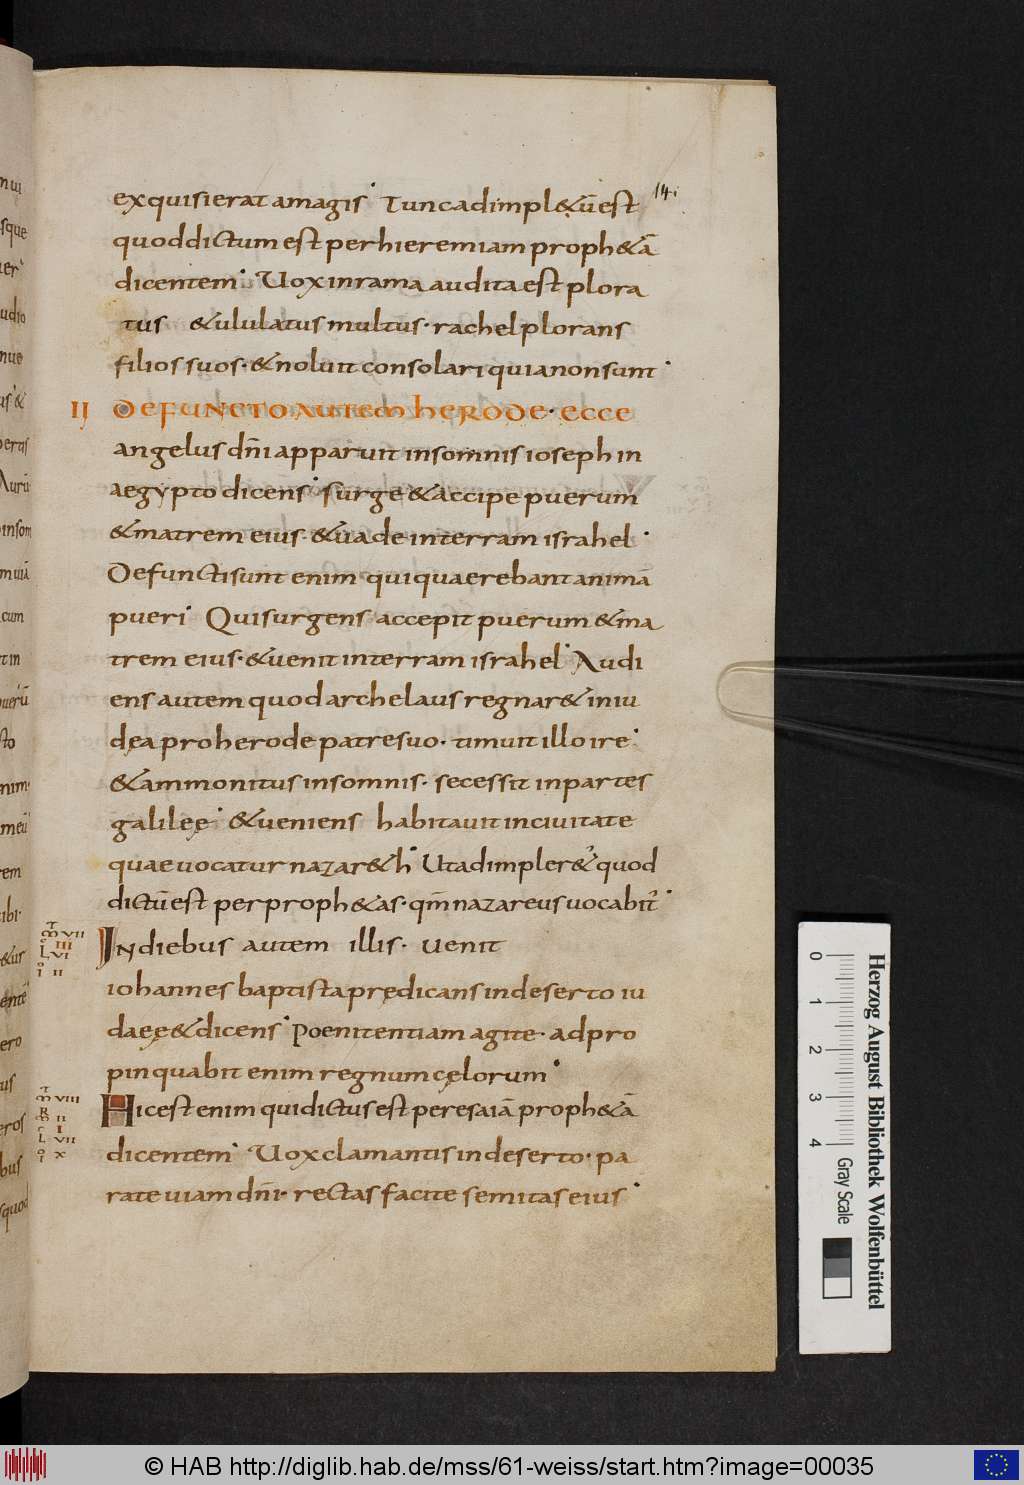 exquisierat amagis· Tuncadimpl&ūest 14.
quoddictumest perhieremiam proph&ā
dicentem· Uoxinrama audita est plora
tus &ululatus multus· rachelplorans
filios suos· &noluit consolari quianonsunt·
II DEFUNCTO AUTEM HERODE· ECCE
angelus dn̄i apparuit insomnis ioseph in
aegypto dicens· surge &accipe puerum
&matrem eius· &uade interram israhel·
Defunctisunt enim quiquaerebant animā
pueri· Quisurgens accepit puerum &ma
trem eius· &uenit interram israhel· Audi
ens autem quod archelaus regnar& iniu
dęa proherode patresuo· timuit illo ire·
&ammonitus insomnis· secessit inpartes
galilęę· &ueniens habitauit inciuitate
quae uocatur nazar&h· Utadimpler&ʼ quod
dictūest per proph&as· qm̄ nazareus uocabit᾽·
Indiebus autem illis· uenit
iohannes baptista prędicans indeserto iu
daęę &dicens· Poenitentiam agite· adpro
pinquabit enim regnum cęlorum·
Hicest enim quidictusest peresaiā proph&ā
dicentem· Uoxclamantis indeserto· pa
rate uiam dn̄i· rectas facite semitas eius·
VII
III
L VI
II
VIII
II
I
L VII
X
0 1 2 3 4
Gray Scale
Herzog August Bibliothek Wolfenbüttel
© HAB http://diglib.hab.de/mss/61-weiss/start.htm?image=00035